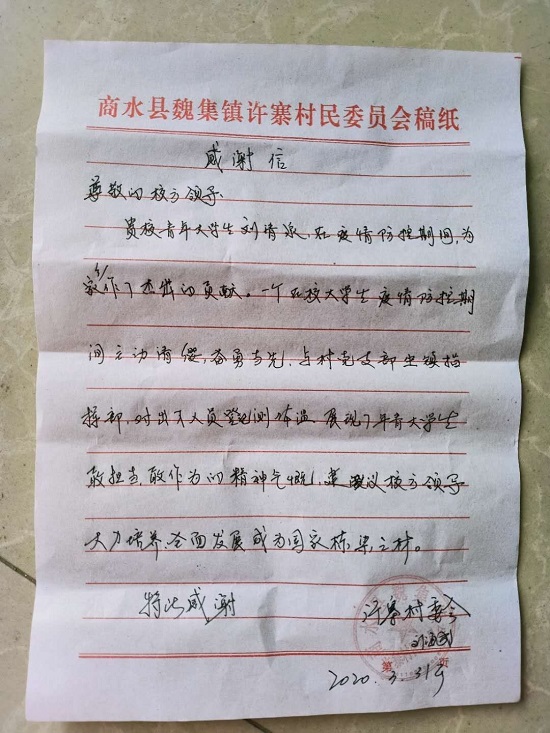 商水县魏集镇许寨村民委员会稿纸
感谢信
尊敬的校方领导:
贵校青年大学生刘情泉,在疫情防控期间,为
家乡作了杰出的贡献。一个在校大学生疫情防控期
间主动请缨,奋勇当先,与村党支部坐镇指
挥部,对出入人员登记测体温,展现了年青大学生
敢担当,敢作为的精神气慨,建议校方领导
大力培养,全面发展成为国家栋梁之材。
特此感谢
许寨村委会
2020.3.31号